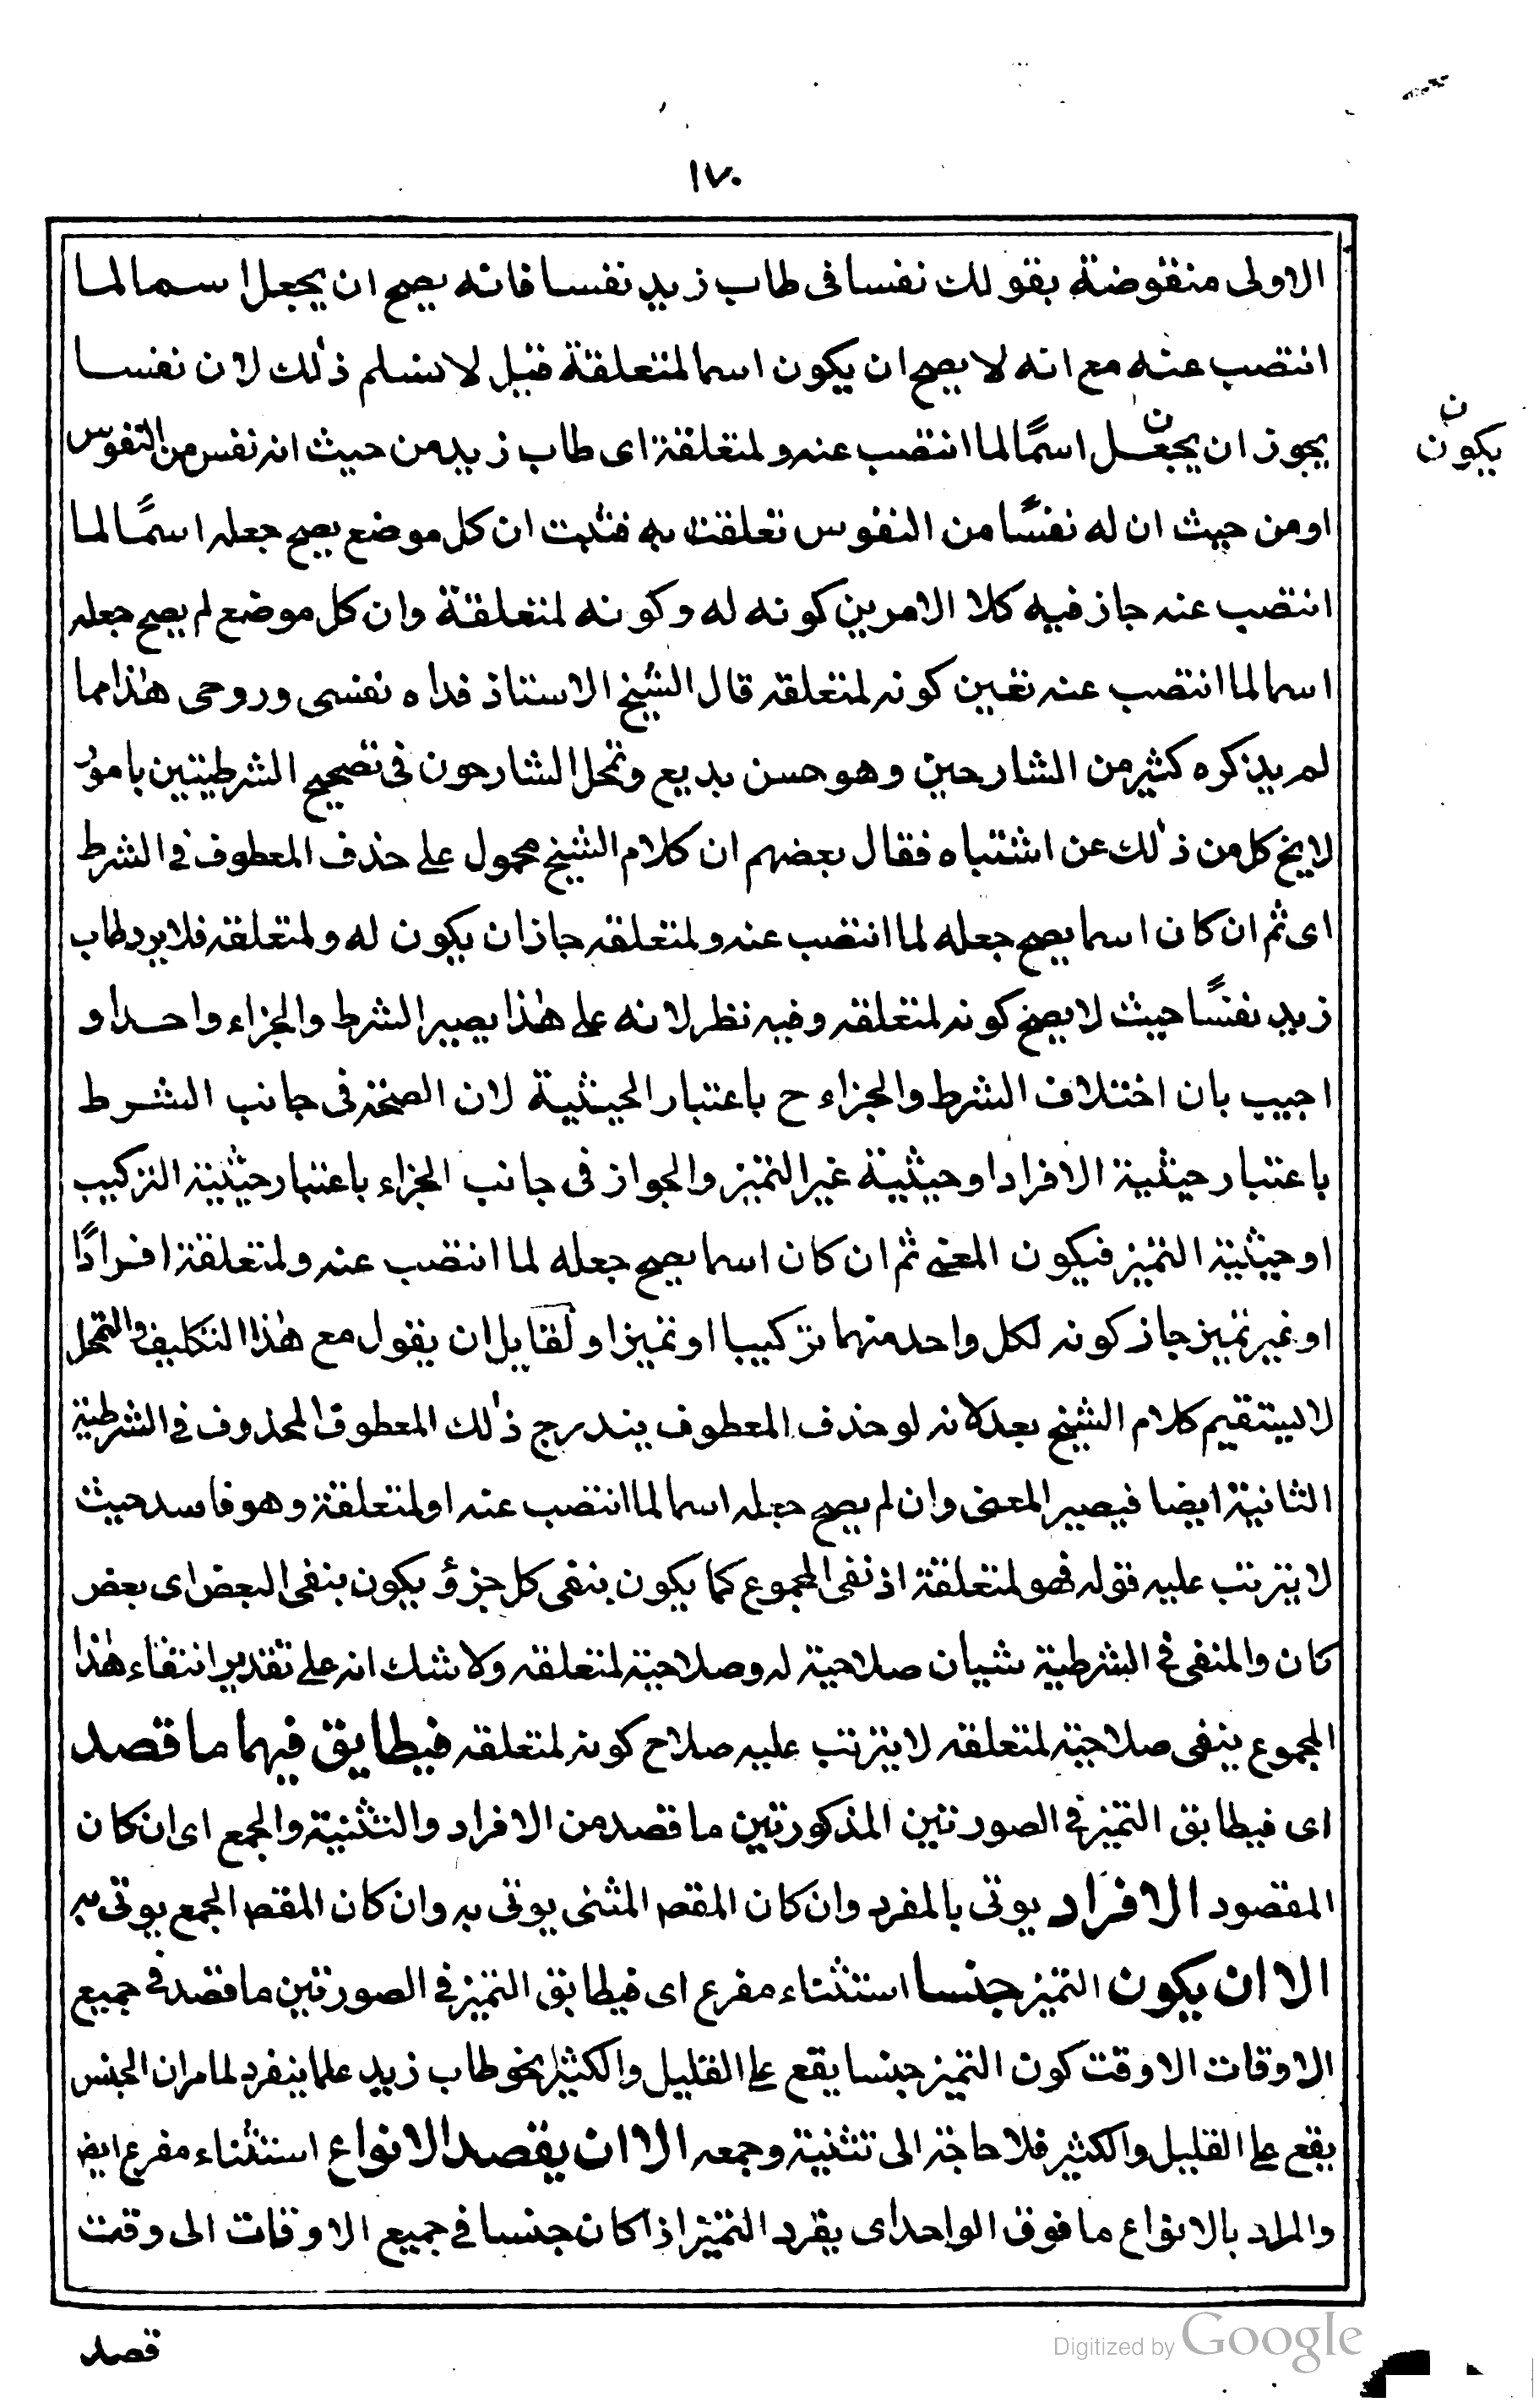 ١٧٠
الاولى منقوضة بقولك نفسا فى طاب زيد نفسا فانه يصح ان يجعل اسما لما
انتصب عنه مع انه لا يصح ان يكون اسما لمتعلقة قيل لا نسلم ذلك لان نفسا
يجوز ان يجعل اسمًا لما انتصب عنه ولمتعلقة اى طاب زيد من حيث انه نفس من النفوس
ن
يكون
او من حيث ان له نفسًا من النفوس تعلقت به فثبت ان كل موضع يصح جعله اسمًا لما
انتصب عنه جاز فيه كلا الامرين كونه له وكونه لمتعلقة وان كل موضع لم يصح جعله
اسما لما انتصب عنه تعين كونه لمتعلقه قال الشيخ الاستاذ فداه نفسى وروحى هذا مما
لم يذكره كثير من الشارحين وهو حسن بديع وتمحل الشارحون فى تصحيح الشرطيتين بامور
لا يخ كل من ذلك عن اشتباه فقال بعضهم ان كلام الشيخ محمول على حذف المعطوف فى الشرط
اى ثم ان كان اسما يصح جعله لما انتصب عنه ولمتعلقه جاز ان يكون له ولمتعلقه فلا يرد طاب
زيد نفسًا حيث لا يصح كونه لمتعلقه وفيه نظر لانه على هذا يصير الشرط والجزاء واحدا و
اجيب بان اختلاف الشرط والجزاء ح باعتبار الحيثية لان الصحة فى جانب الشرط
باعتبار حيثية الافراد او حيثية غير التميز والجواز فى جانب الجزاء باعتبار حيثية التركيب
او حيثية التميز فيكون المعنى ثم ان كان اسما يصح جعله لما انتصب عنه ولمتعلقة افرادًا
او غير تميز جاز كونه لكل واحد منهما تركيبا او تميزا ولقايل ان يقول مع هذا التكليف والتمحل
لا يستقيم كلام الشيخ بعد لانه لو حذف المعطوف يندرج ذلك المعطوف المحذوف فى الشرطية
الثانية ايضا فيصير المعنى وان لم يصح جعله اسما لما انتصب عنه او لمتعلقة وهو فاسد حيث
لا يترتب عليه قوله فهو لمتعلقة اذ نفى المجموع كما يكون بنفى كل جزؤ يكون بنفى البعض اى بعض
كان والمنفى فى الشرطية شيان صلاحية له وصلاحية لمتعلقه ولا شك انه على تقدير انتفاء هذا
المجموع ينفى صلاحية لمتعلقه لا يترتب عليه صلاح كونه لمتعلقه فيطابق فيهما ما قصد
اى فيطابق التميز فى الصورتين المذكورتين ما قصد من الافراد والتثنية والجمع اى ان كان
المقصود الافراد يوتى بالمفرد وان كان المقص المثنى يوتى به وان كان المقص الجمع يوتى به
الا ان يكون التميز جنسا استثناء مفرع اى فيطابق التميز فى الصورتين ما قصد فى جميع
الاوقات الا وقت كون التميز جنسا يقع على القليل والكثير نحو طاب زيد علما ينفرد لما مر ان الجنس
يقع على القليل والكثير فلا حاجة الى تثنية وجمعه الا ان يقصد الانواع استثناء مفرع ايض
والمراد بالانواع ما فوق الواحد اى يفرد التميز اذا كان جنسا فى جميع الاوقات الى وقت
قصد
Digitized by Google